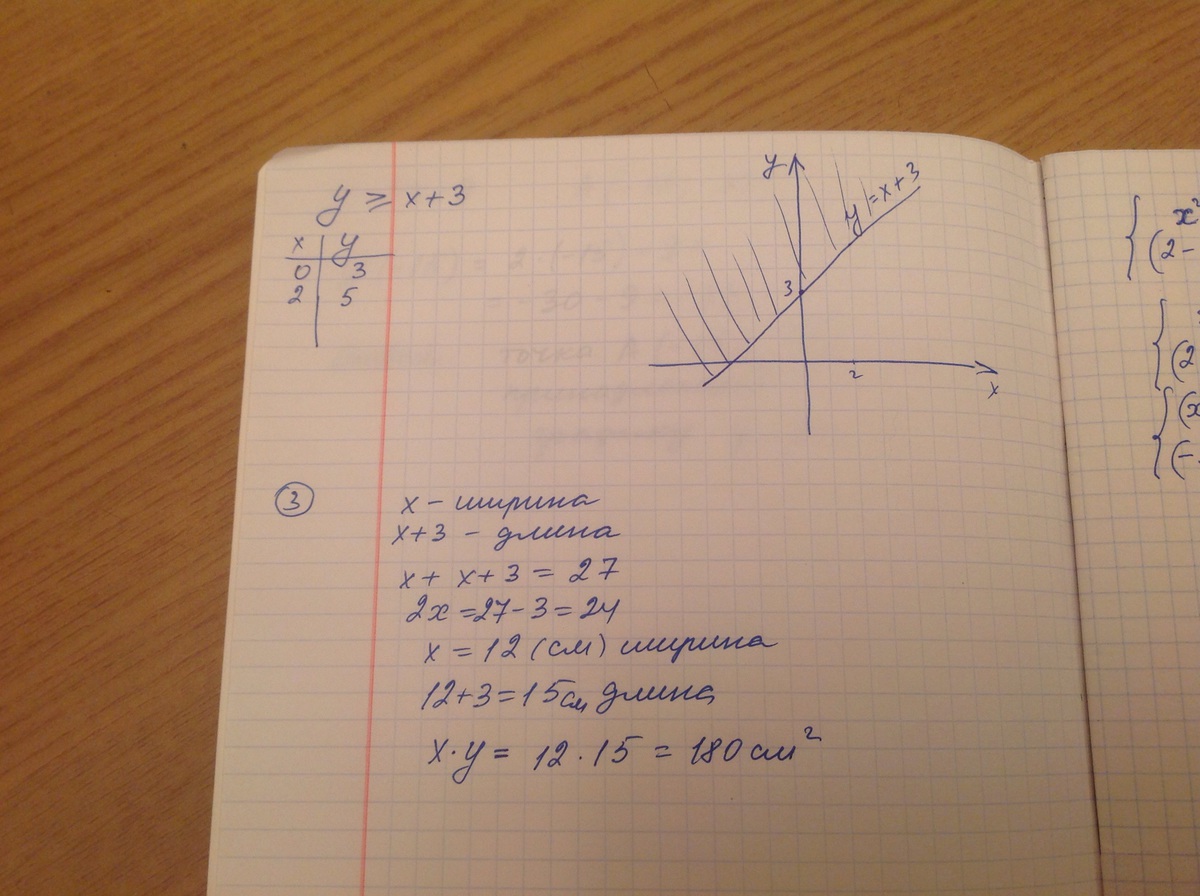 y ≥ x+3
x | y
0 | 3
2 | 5
y
y = x+3
3
2
x
③
x – ширина
x+3 – длина
x + x+3 = 27
2x = 27-3 = 24
x = 12 (см) ширина
12+3 = 15 см длина
x·y = 12·15 = 180 см²
{ x²
(2-
{
(2
{ (x
(-